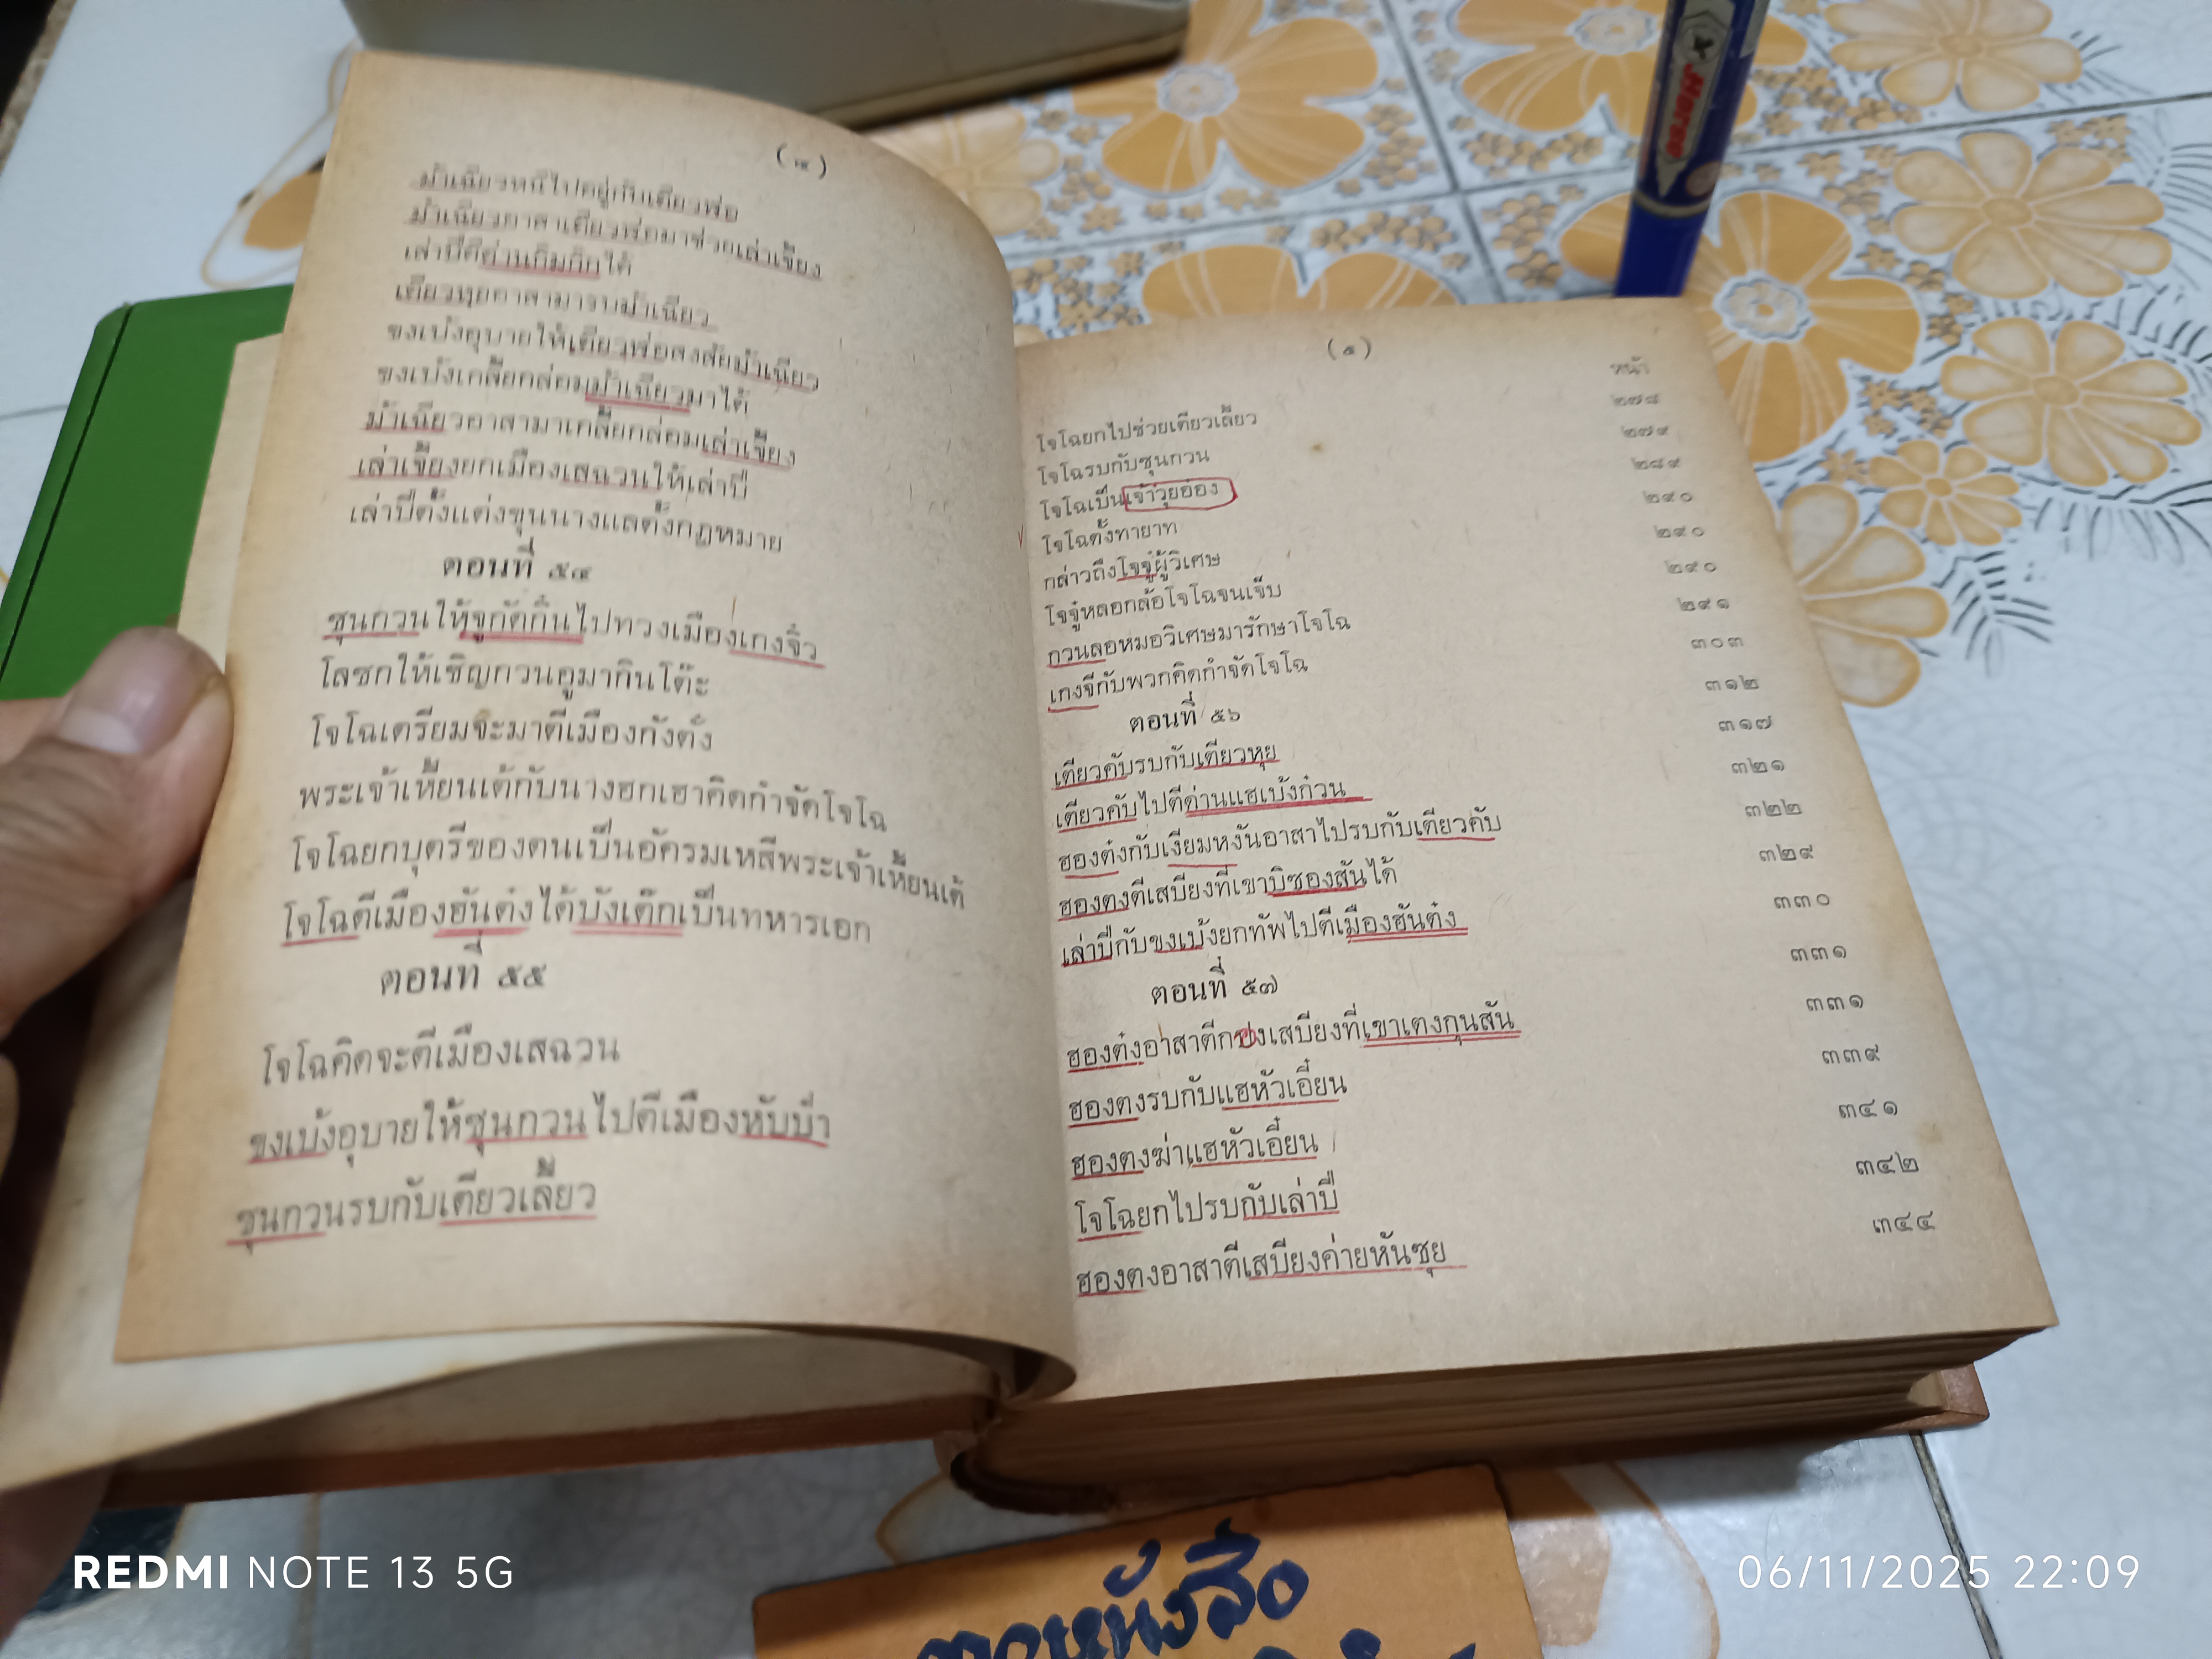 (๔)
ม้าเฉียวหนีไปอยู่กับเตียวฬ่อ
ม้าเฉียวอาสาเตียวฬ่อมาช่วยเล่าเจี้ยง
เล่าปี่ตีด่านกิมก๊กได้
เตียวหุยอาสามารบม้าเฉียว
ขงเบ้งอุบายให้เตียวฬ่อสงสัยม้าเฉียว
ขงเบ้งเกลี้ยกล่อมม้าเฉียวมาได้
ม้าเฉียวอาสามาเกลี้ยกล่อมเล่าเจี้ยง
เล่าเจี้ยงยกเมืองเสฉวนให้เล่าปี่
เล่าปี่ตั้งแต่งขุนนางแลตั้งกฎหมาย
ตอนที่ ๕๔
ซุนกวนให้จูกัดกิ๋นไปทวงเมืองเกงจิ๋ว
โลซกให้เชิญกวนอูมากินโต๊ะ
โจโฉเตรียมจะมาตีเมืองกังตั๋ง
พระเจ้าเหี้ยนเต้กับนางฮกเฮาคิดกำจัดโจโฉ
โจโฉยกบุตรีของตนเป็นอัครมเหสีพระเจ้าเหี้ยนเต้
โจโฉตีเมืองฮันต๋ง ได้บังเต๊กเป็นทหารเอก
ตอนที่ ๕๕
โจโฉคิดจะตีเมืองเสฉวน
ขงเบ้งอุบายให้ซุนกวนไปตีเมืองหับป๋า
ซุนกวนรบกับเตียวเลี้ยว
(๕)
หน้า
โจโฉยกไปช่วยเตียวเลี้ยว ๒๗๘
โจโฉรบกับซุนกวน ๒๗๙
โจโฉเป็นเจ้าวุยอ๋อง ๒๘๙
โจโฉตั้งทายาท ๒๙๐
กล่าวถึงโจจู๋ผู้วิเศษ ๒๙๐
โจจู๋หลอกล้อโจโฉจนเจ็บ ๒๙๐
กวนลอหมอวิเศษมารักษาโจโฉ ๒๙๑
เกงจีกับพวกคิดกำจัดโจโฉ ๓๐๓
ตอนที่ ๕๖
เตียวคับรบกับเตียวหุย ๓๑๒
เตียวคับไปตีด่านแฮเบ้งก๋วน ๓๑๗
ฮองต๋งกับเงียมหงันอาสาไปรบกับเตียวคับ ๓๒๑
ฮองตงตีเสบียงที่เขาบิซองสันได้ ๓๒๒
เล่าปี่กับขงเบ้งยกทัพไปตีเมืองฮันต๋ง ๓๒๙
ตอนที่ ๕๗ ๓๓๐
ฮองต๋งอาสาตีกองเสบียงที่เขาเตงกุนสัน ๓๓๑
ฮองตงรบกับแฮหัวเอี๋ยน ๓๓๑
ฮองตงฆ่าแฮหัวเอี๋ยน ๓๓๙
โจโฉยกไปรบกับเล่าปี่ ๓๔๑
ฮองตงอาสาตีเสบียงค่ายหันซุย ๓๔๒
๓๔๔
Horse
REDMI NOTE 13 5G
06/11/2025 22:09